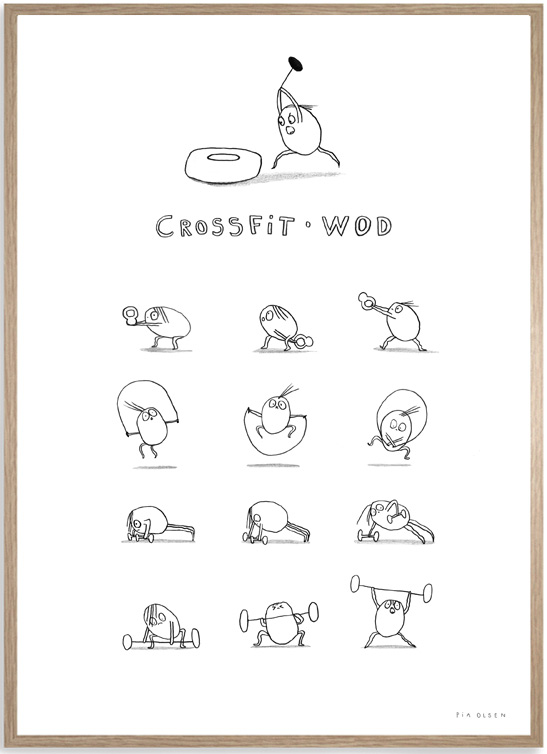 CROSSFiT • WOD
PiA OLSEN